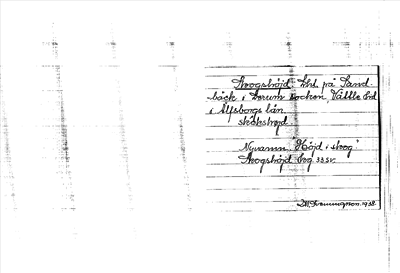 Skogshöjd, Lht. på Sand
bäck i Lerum socken, Vättle hd
i Älfsborgs län.
skoksheyd
Nynamn "Höjd i skog"
Skogshöjd brg. 33 sv.
1938.